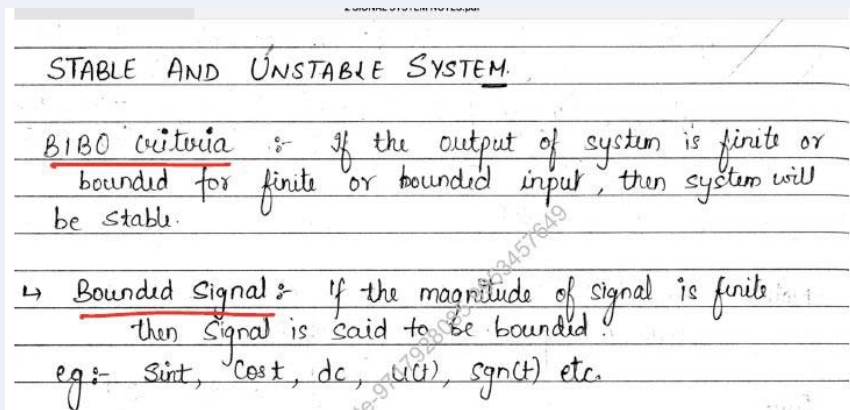 STABLE AND UNSTABLE SYSTEM.
BIBO Criteria :- If the output of system is finite or
bounded for finite or bounded input, then system will
be stable.
↳ Bounded Signal :- If the magnitude of signal is finite
then signal is said to be bounded.
eg :- Sint, Cost, dc, u(t), sgn(t) etc.